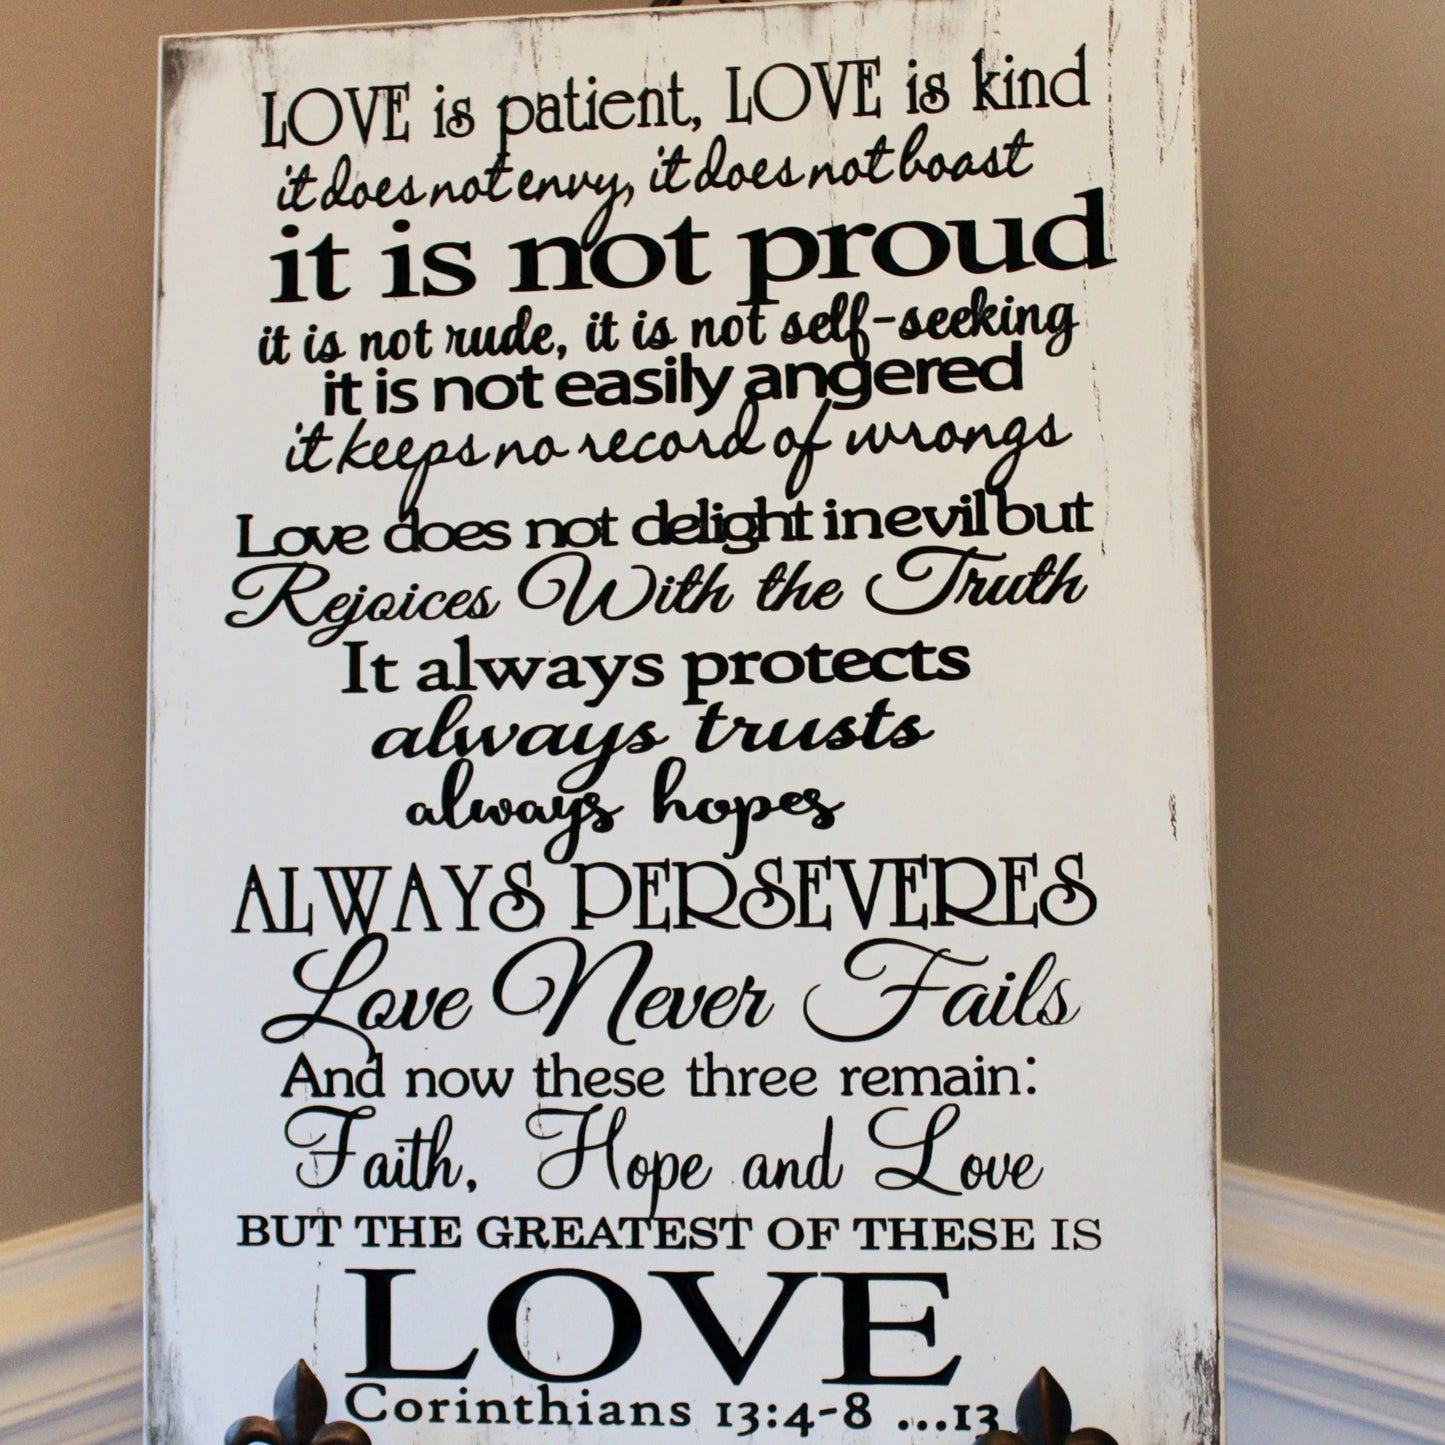 LOVE is patient, LOVE is kind
it does not envy, it does not boast
it is not proud
it is not rude, it is not self-seeking
it is not easily angered
it keeps no record of wrongs
Love does not delight in evil but
Rejoices With the Truth
It always protects
always trusts
always hopes
ALWAYS PERSEVERES
Love Never Fails
And now these three remain:
Faith, Hope and Love
BUT THE GREATEST OF THESE IS
LOVE
Corinthians 13:4-8 ...13